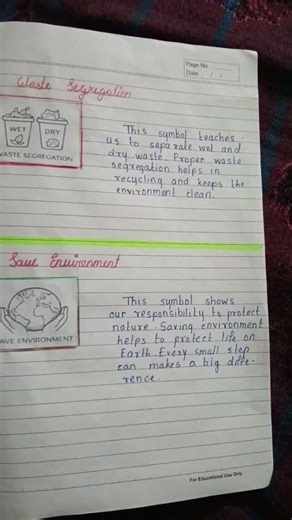 Page No.
Date / /
Waste Segregation
WET DRY
WASTE SEGREGATION
This symbol teaches
us to separate wet and
dry waste. Proper waste
segregation helps in
recycling and keeps the
environment clean.
Save Environment
SAVE ENVIRONMENT
This symbol shows
our responsibility to protect
nature. Saving environment
helps to protect life on
Earth. Every small step
can makes a big diffe-
rence.
For Educational Use Only